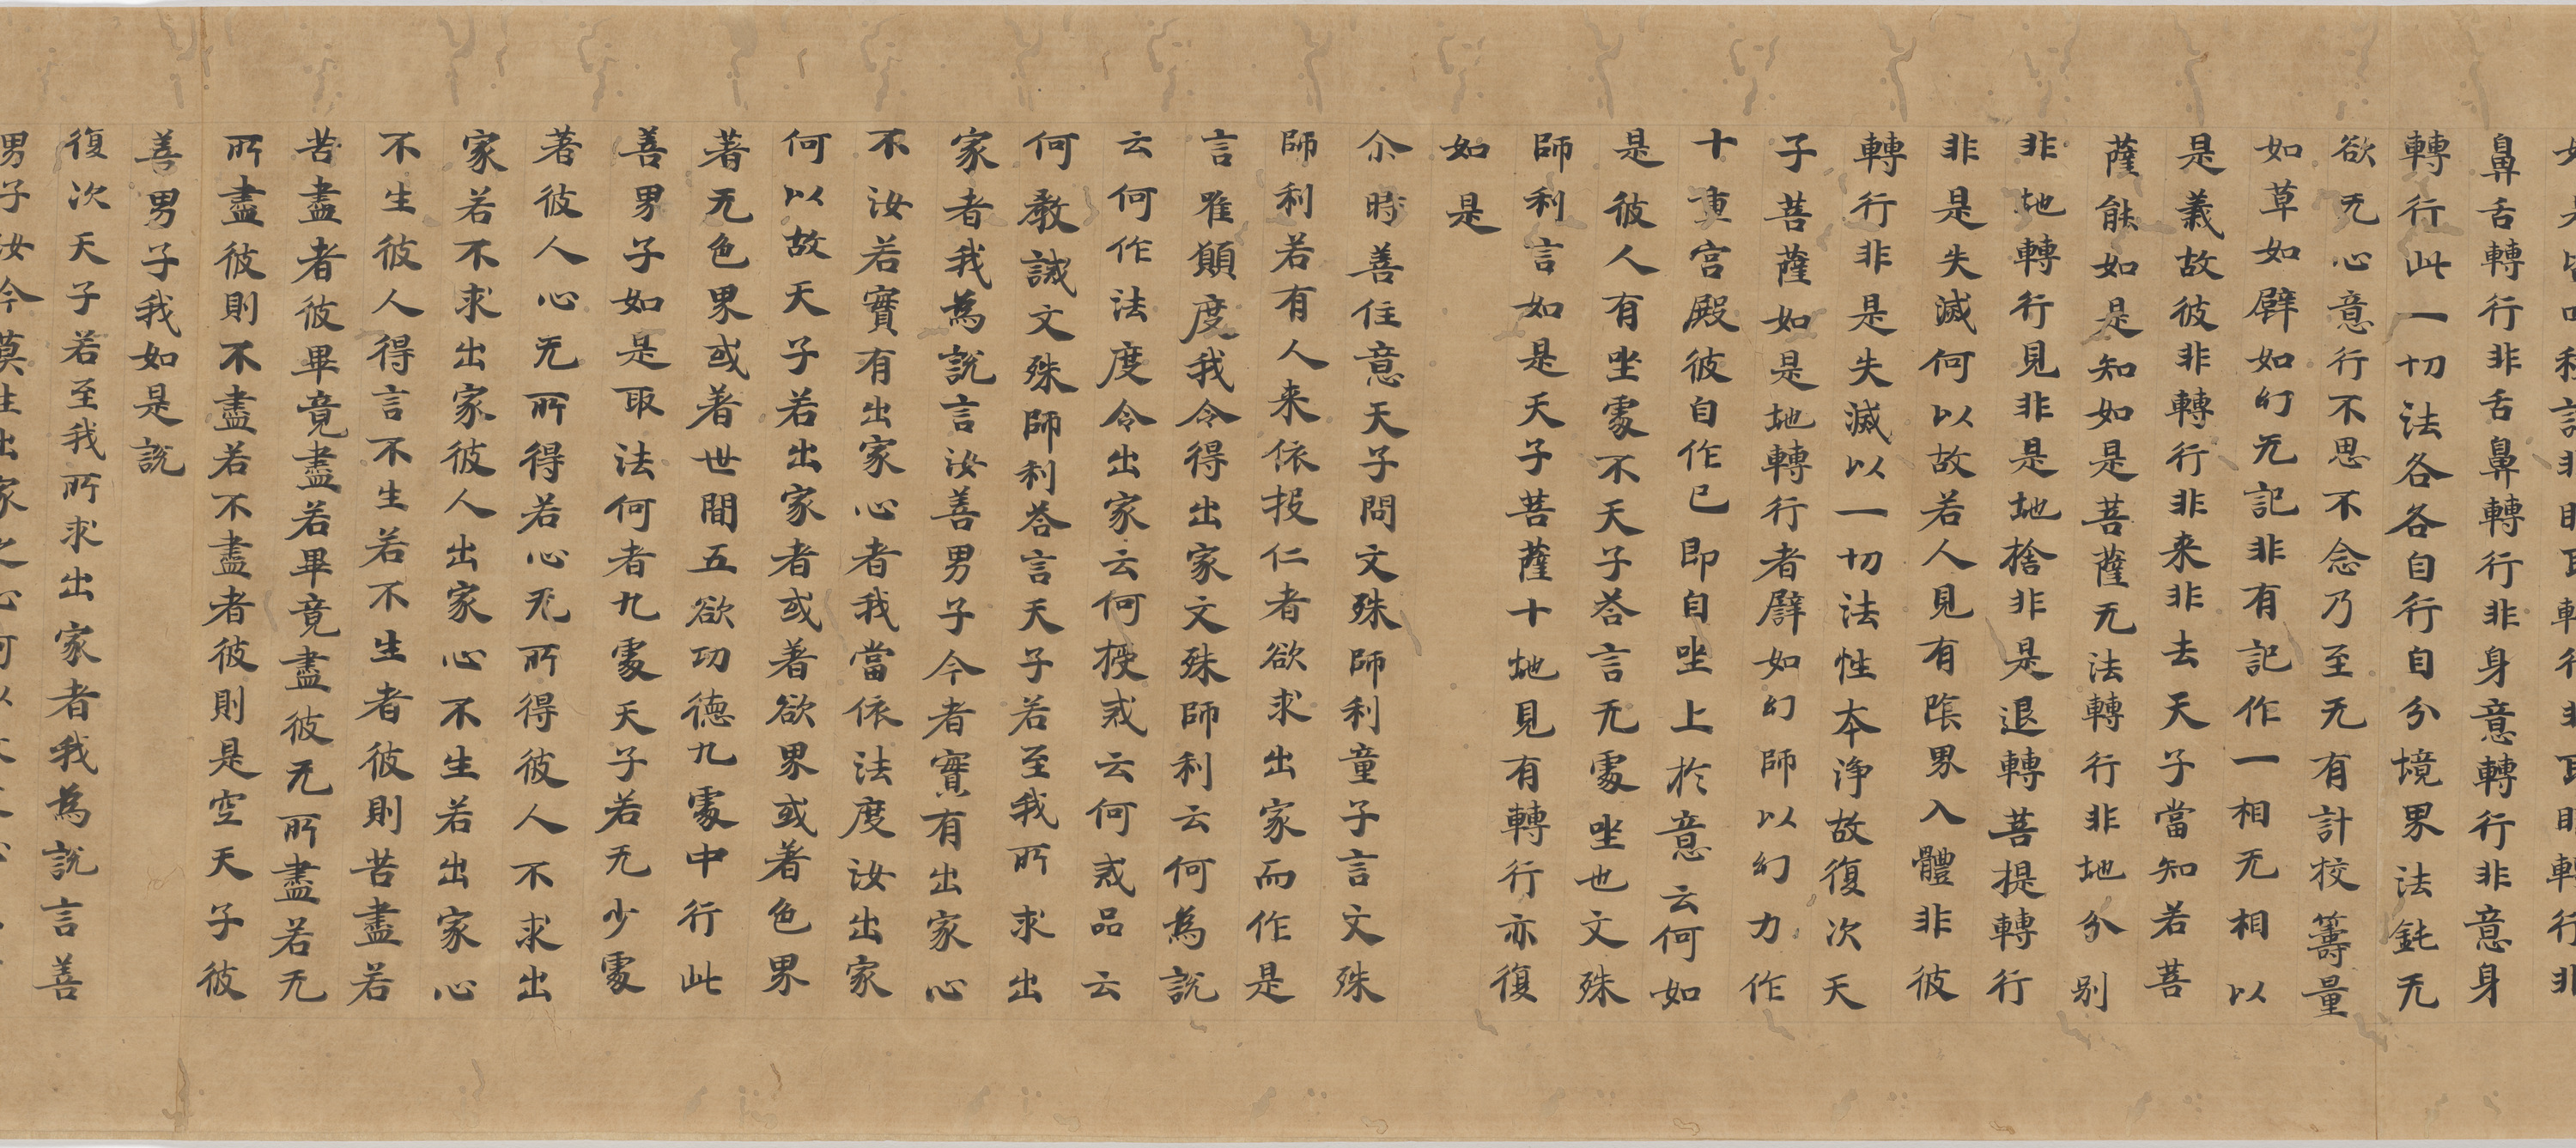 鼻舌轉行非舌鼻轉行非身意轉行非意身
轉行此一切法各各自行自分境界法鈍无
欲无心意行不思不念乃至无有計校籌量
如草如辟如幻无記非有記作一相无相以
是義故彼非轉行非来非去天子當知若菩
薩能如是知如是菩薩无法轉行非地分别
非地轉行見非是地捨非是退轉菩提轉行
非是失滅何以故若人見有陰界入體非彼
轉行非是失滅以一切法性本淨故復次天
子菩薩如是地轉行者辟如幻師以幻力作
十重宫殿彼自作已即自坐上於意云何如
是彼人有坐處不天子荅言无處坐也文殊
師利言如是天子菩薩十地見有轉行亦復
如是
尒時善住意天子問文殊師利童子言文殊
師利若有人来依投仁者欲求出家而作是
言唯願度我令得出家文殊師利云何為說
云何作法度令出家云何授戒云何戒品云
何教誡文殊師利荅言天子若至我所求出
家者我為說言汝善男子今者實有出家心
不汝若實有出家心者我當依法度汝出家
何以故天子若出家者或著欲界或著色界
著无色界或著世間五欲功德九處中行此
善男子如是取法何者九處天子若无少處
著彼人心无所得若心无所得彼人不求出
家若不求出家彼人出家心不生若出家心
不生彼人得言不生若不生者彼則苦盡若
苦盡者彼畢竟盡若畢竟盡彼无所盡若无
所盡彼則不盡若不盡者彼則是空天子彼
善男子我如是說
復次天子若至我所求出家者我為說言善